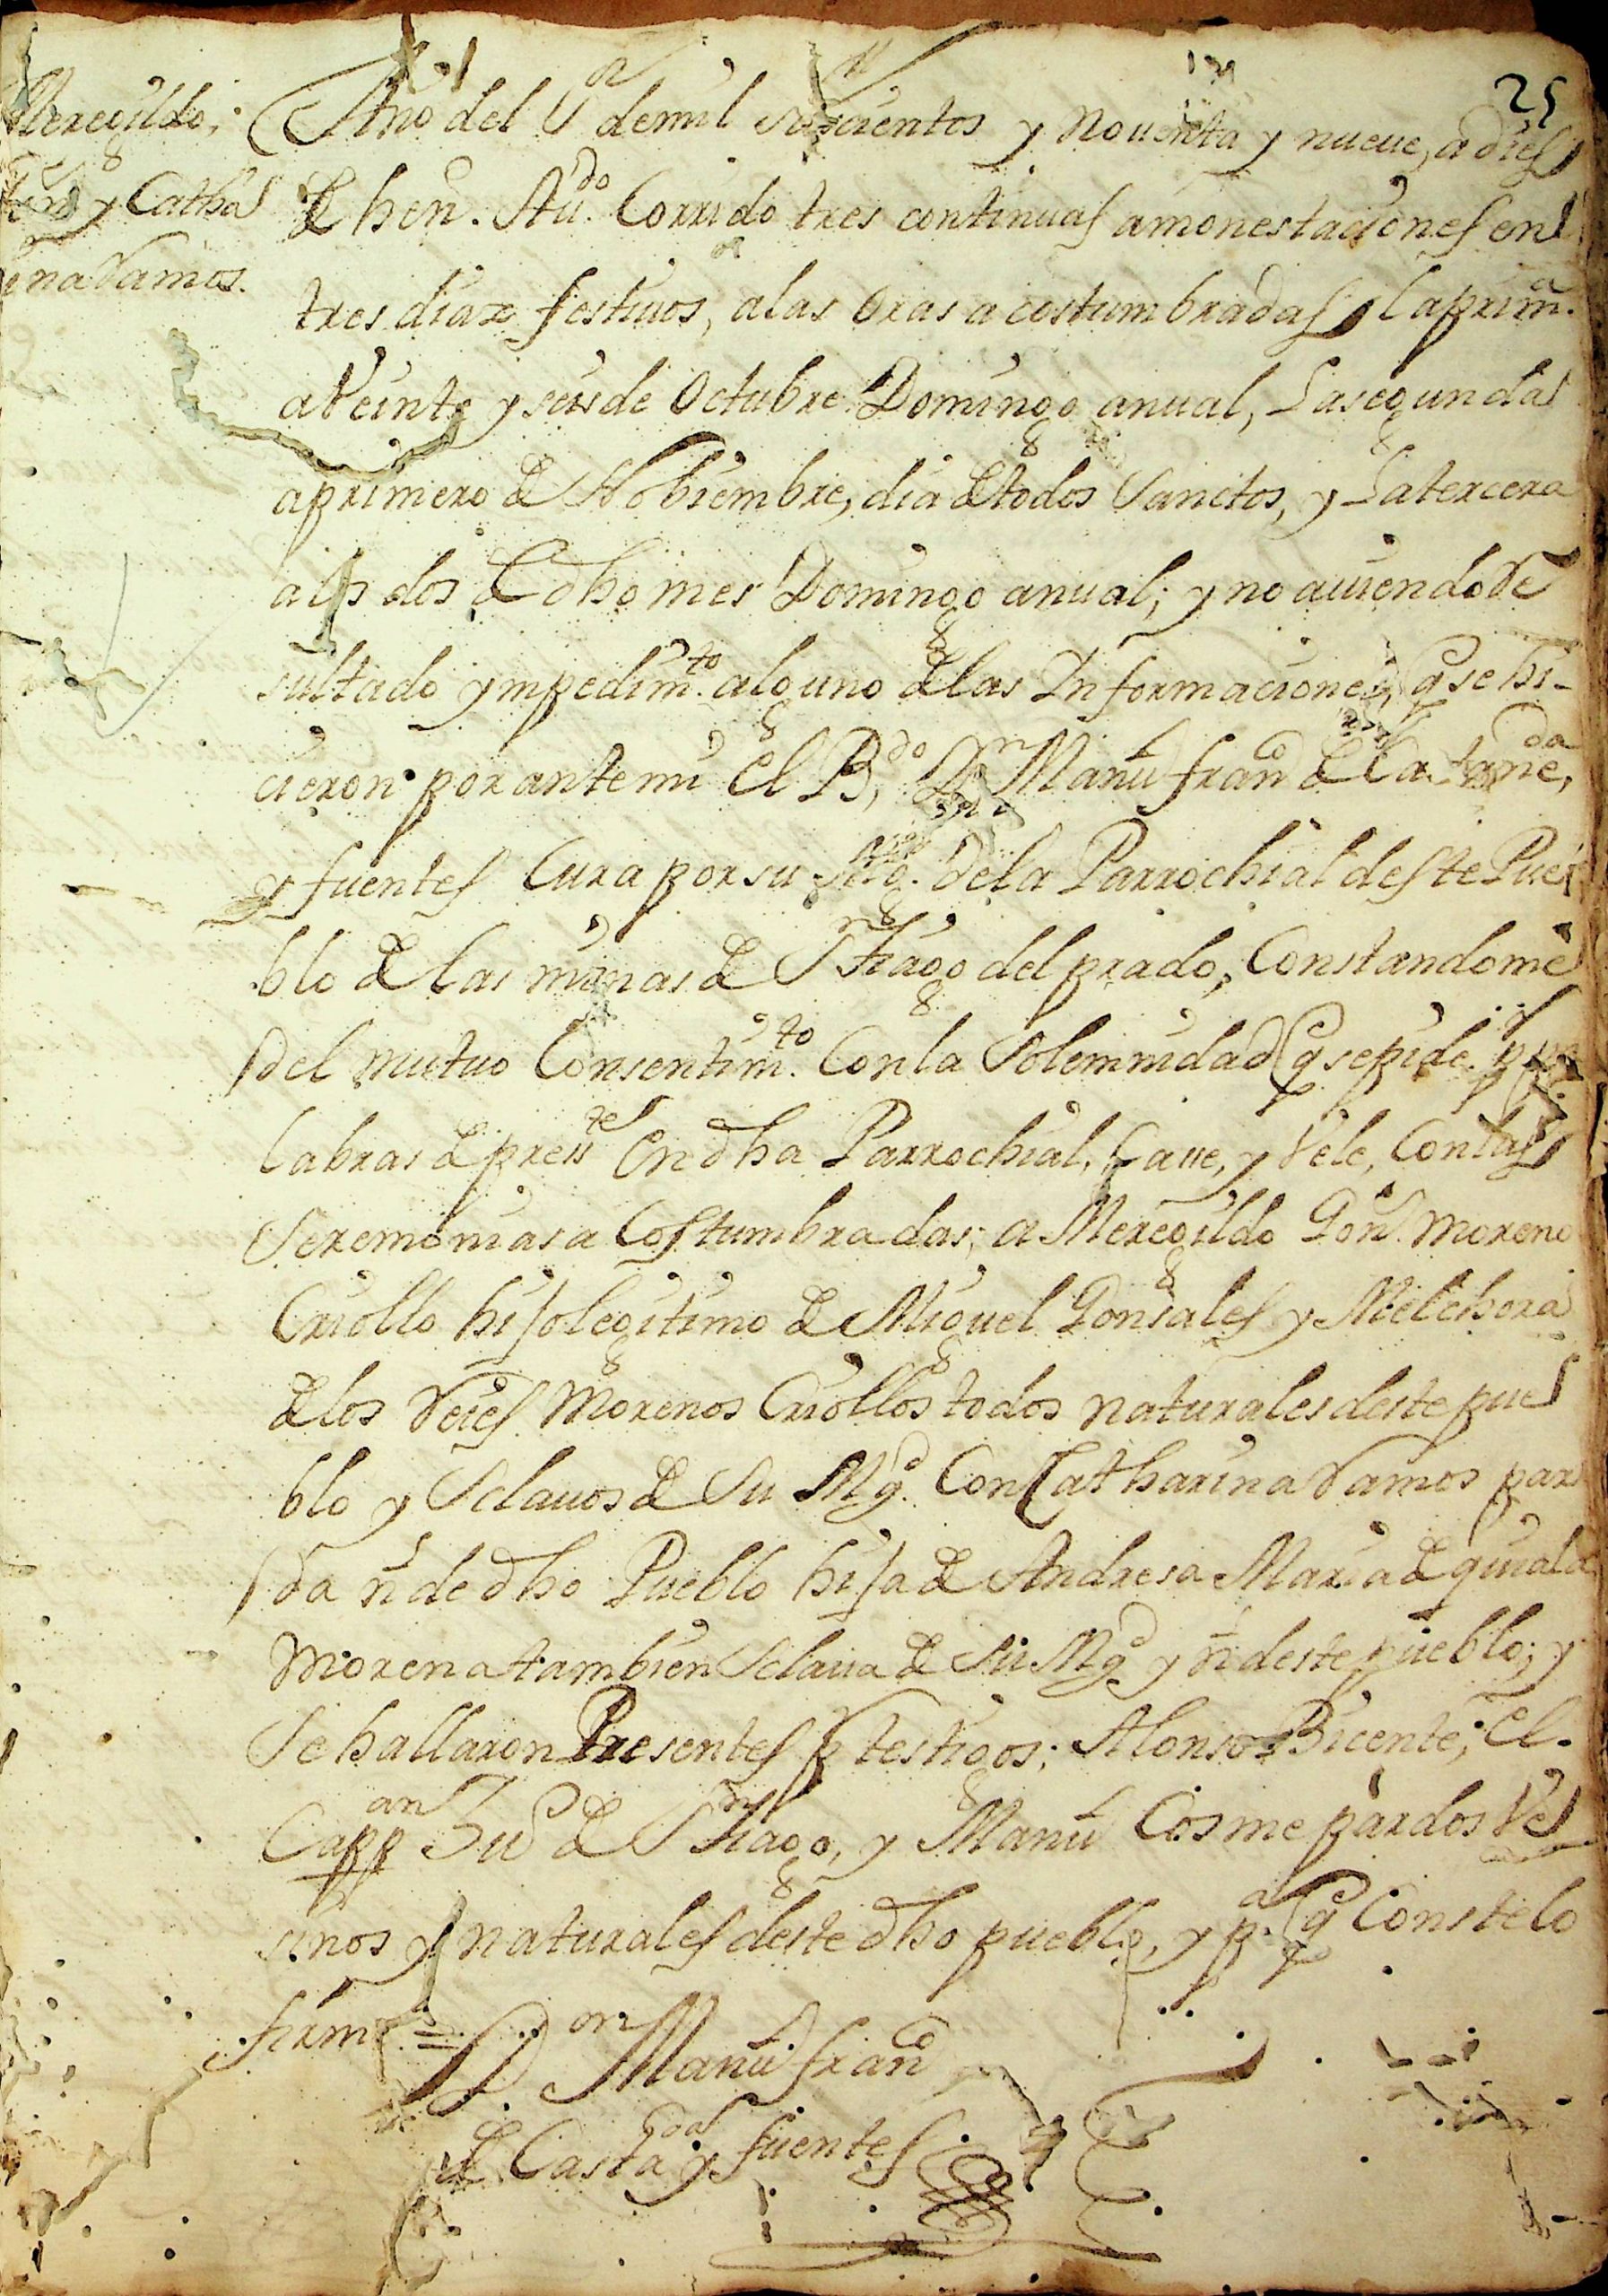 25
Meregildo,
y Catha
rina Ramos.
Año del Sr demil seiscientos y nouenta y nueue, a dies
de hen. Auido. Corrido tres continuas amonestaciones en
tres diaz festiuos, alas oras acostumbradas, la prima.
a Veinte y seis de Octubre Domingo anual, La segunda
a primero de Nobiembre, dia de todos Sanctos, y La tercera
a los dos de dho mes Domingo anual; y no auiendo Re
sultado ympedimto. alguno de las Informaciones, q se hi-
cieron por ante mi El Bdo, Dn Manl franco de Castaneda,
y fuentes Cura por su Mgd. dela Parrochial deste Pue
blo de las minas de S Thiago del prado; Constandome
del mutuo Consentimto. Con la Solemnidad q se pide. p pa
labras de preste En dha Parrochial, Case, y Vele, Con las
Seremonias a Costumbradas; a Meregildo Gons. moreno
Criollo hijo legitimo de Miguel Gonsales y Melchora
de los Reies Morenos Criollos todos naturales deste pue
blo y Sclauos de Su Mgd. Con Catharina Ramos par
da nl de dho Pueblo hija de Andresa Maria de quiala
Morena tambien Sclaua de Su Mgd y nl deste pueblo; y
Se hallaron Presentes p testigos; Alonso Bicente; El.
Cappan Ju de S Thiago, y Manl Cosme pardos Ve
sinos y naturales deste dho pueblo, y pa. q Conste lo
firme. = Don Manl franco
de Castada y fuentes